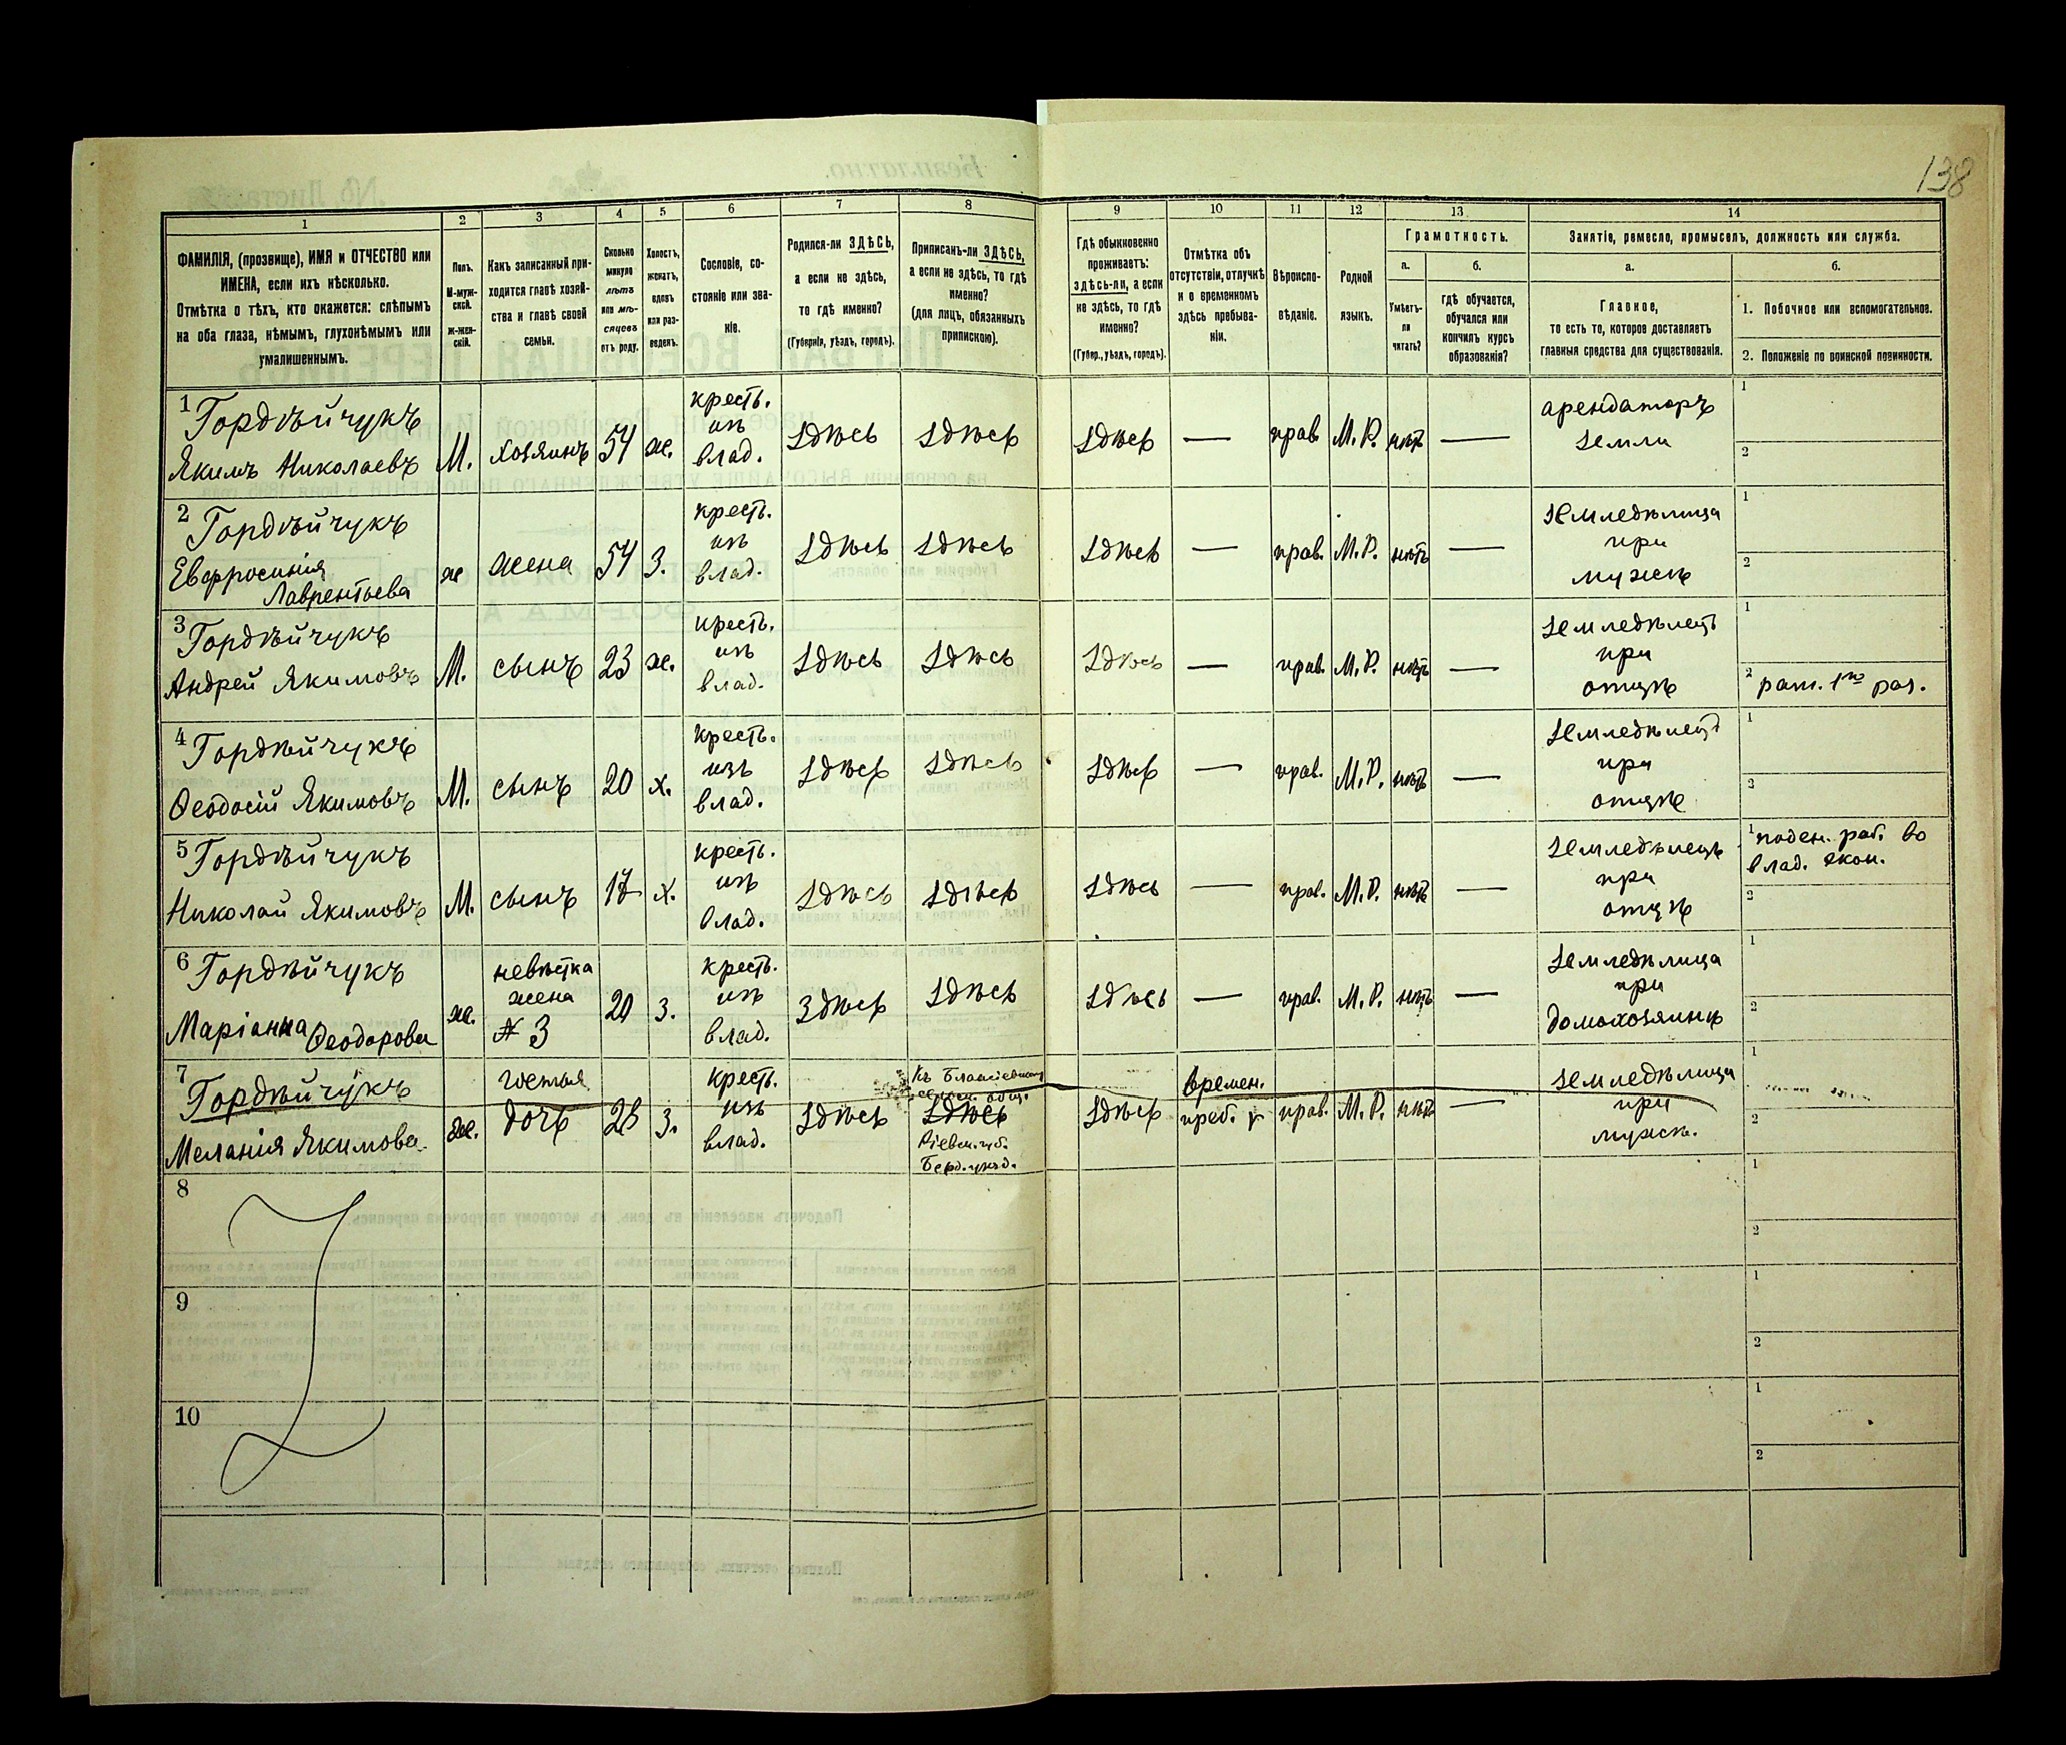 138
1 2 3 4 5 6 7 8 9 10 11 12 13 14
ФАМИЛІЯ, (прозвище), ИМЯ и ОТЧЕСТВО или ИМЕНА, если ихъ нѣсколько.
Отмѣтка о тѣхъ, кто окажется: слѣпымъ на оба глаза, нѣмымъ, глухонѣмымъ или умалишеннымъ.
Полъ. М-муж-ской. ж-жен-скій.
Какъ записанный при-ходится главѣ хозяй-ства и главѣ своей семьи.
Сколько минуло лѣтъ или мѣ-сяцевъ отъ роду.
Холостъ, женатъ, вдовъ или раз-веденъ.
Сословіе, со-стояніе или зва-ніе.
Родился-ли ЗДѢСЬ, а если не здѣсь, то гдѣ именно?
(Губернія, уѣздъ, городъ).
Приписанъ-ли ЗДѢСЬ, а если не здѣсь, то гдѣ именно?
(для лицъ, обязанныхъ припискою).
Гдѣ обыкновенно проживаетъ: здѣсь-ли, а если не здѣсь, то гдѣ именно?
(Губер., уѣздъ, городъ).
Отмѣтка объ отсутствіи, отлучкѣ и о временномъ здѣсь пребыва-ніи.
Вѣроиспо-вѣданіе.
Родной языкъ.
Грамотность.
а. Умѣетъ-ли читать?
б. гдѣ обучается, обучался или кончилъ курсъ образованія?
Занятіе, ремесло, промыселъ, должность или служба.
а. Главное, то есть то, которое доставляетъ главныя средства для существованія.
б.
1. Побочное или вспомогательное.
2. Положеніе по воинской повинности.
1 Гордѣйчукъ Якимъ Николаевъ М. хозяинъ 54 ж. крестъ. изъ влад. здѣсь здѣсь здѣсь — прав. М.Р. нѣтъ — арендаторъ земли 1 2
2 Гордѣйчукъ Евфросинія Лаврентьева ж жена 54 З. крестъ. изъ влад. здѣсь здѣсь здѣсь — прав. М.Р. нѣтъ — земледѣлица при мужѣ 1 2
3 Гордѣйчукъ Андрей Якимовъ М. сынъ 23 ж. крестъ. изъ влад. здѣсь здѣсь здѣсь — прав. М.Р. нѣтъ — земледѣлецъ при отцѣ 1 2 рат. 1го раз.
4 Гордѣйчукъ Ѳеодосій Якимовъ М. сынъ 20 х. крестъ. изъ влад. здѣсь здѣсь здѣсь — прав. М.Р. нѣтъ — земледѣлецъ при отцѣ 1 2
5 Гордѣйчукъ Николай Якимовъ М. сынъ 17 х. крестъ. изъ влад. здѣсь здѣсь здѣсь — прав. М.Р. нѣтъ — земледѣлецъ при отцѣ 1 поден. раб. во влад. экон. 2
6 Гордѣйчукъ Маріанна Ѳеодорова ж. невѣстка жена № 3 20 З. крестъ. изъ влад. здѣсь здѣсь здѣсь — прав. М.Р. нѣтъ — земледѣлица при домохозяинѣ 1 2
7 Гордѣйчукъ Меланія Якимова ж. дочь 28 З. крестъ. изъ влад. здѣсь здѣсь Кіевск. губ. Берд. уѣзд. здѣсь времен. преб. прав. М.Р. нѣтъ — земледѣлица при мужѣ. 1 2
8 1 2
9 1 2
10 1 2